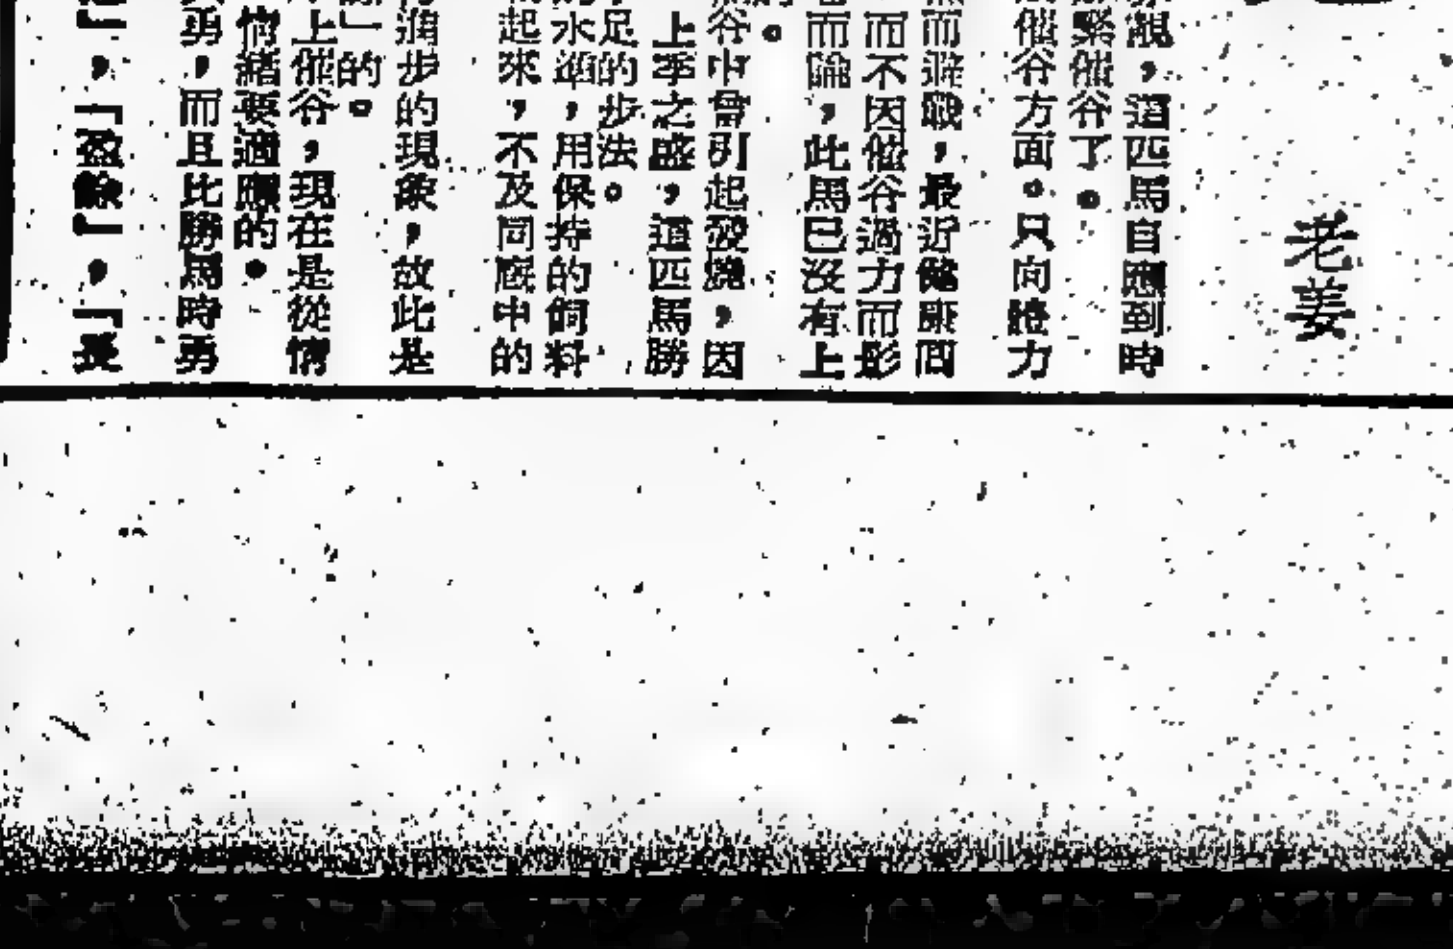 老姜
，這匹馬自應到時
緊催谷了。
催谷方面。只向體力
而避戰，最近健康問
而不因催谷過力而影
而論，此馬已沒有上
。
谷中曾引起發燒，因
上季之盛，這匹馬勝
足的步法。
水準，用保持的飼料
起來，不及同廐中的
進步的現象，故此是
」的。
上催谷，現在是從情
情緒要適應的。
勇，而且比勝馬時勇
」，「盈餘」，「長